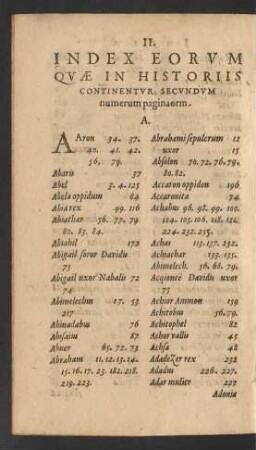 II.
INDEX EORVM
QVÆ IN HISTORIIS
CONTINENTVR, SECVNDVM
numerum paginarum.
A.
AAron 34. 37.
40. 41. 42.
56, 79.
Abaris 37
Abel 3. 4. 125
Abela oppidum 84
Abia rex 99. 116
Abiathar 56. 77. 79
80. 83. 84.
Abigail soror Dauidis
75
Abigail uxor Nabalis 72
74
Abimelechus 17. 53
217
Abinadabus 76
Abisaius 87
Abner 65. 72. 73
Abraham 11. 12. 13. 14.
15. 16. 17. 23. 182. 218.
219. 223.
Abrahami sepulcrum 12
uxor 15
Absalon 70. 72. 76. 79.
80. 82.
Accaron oppidon 196
Accaronita 74
Achabus 96. 98. 99. 102.
104. 105. 106. 118. 121.
224. 232. 235.
Achas 113. 137. 232.
Achiachar 133. 135.
Abimelech. 56. 68. 79.
Dauidis uxor
75
Achior Ammon 159
Achitobus 56. 79.
Achitophel 82
Achor vallis 45
Achsa 48
Adadezer rex 232
Adadus 226. 227.
Adar mulier 227
Adonia